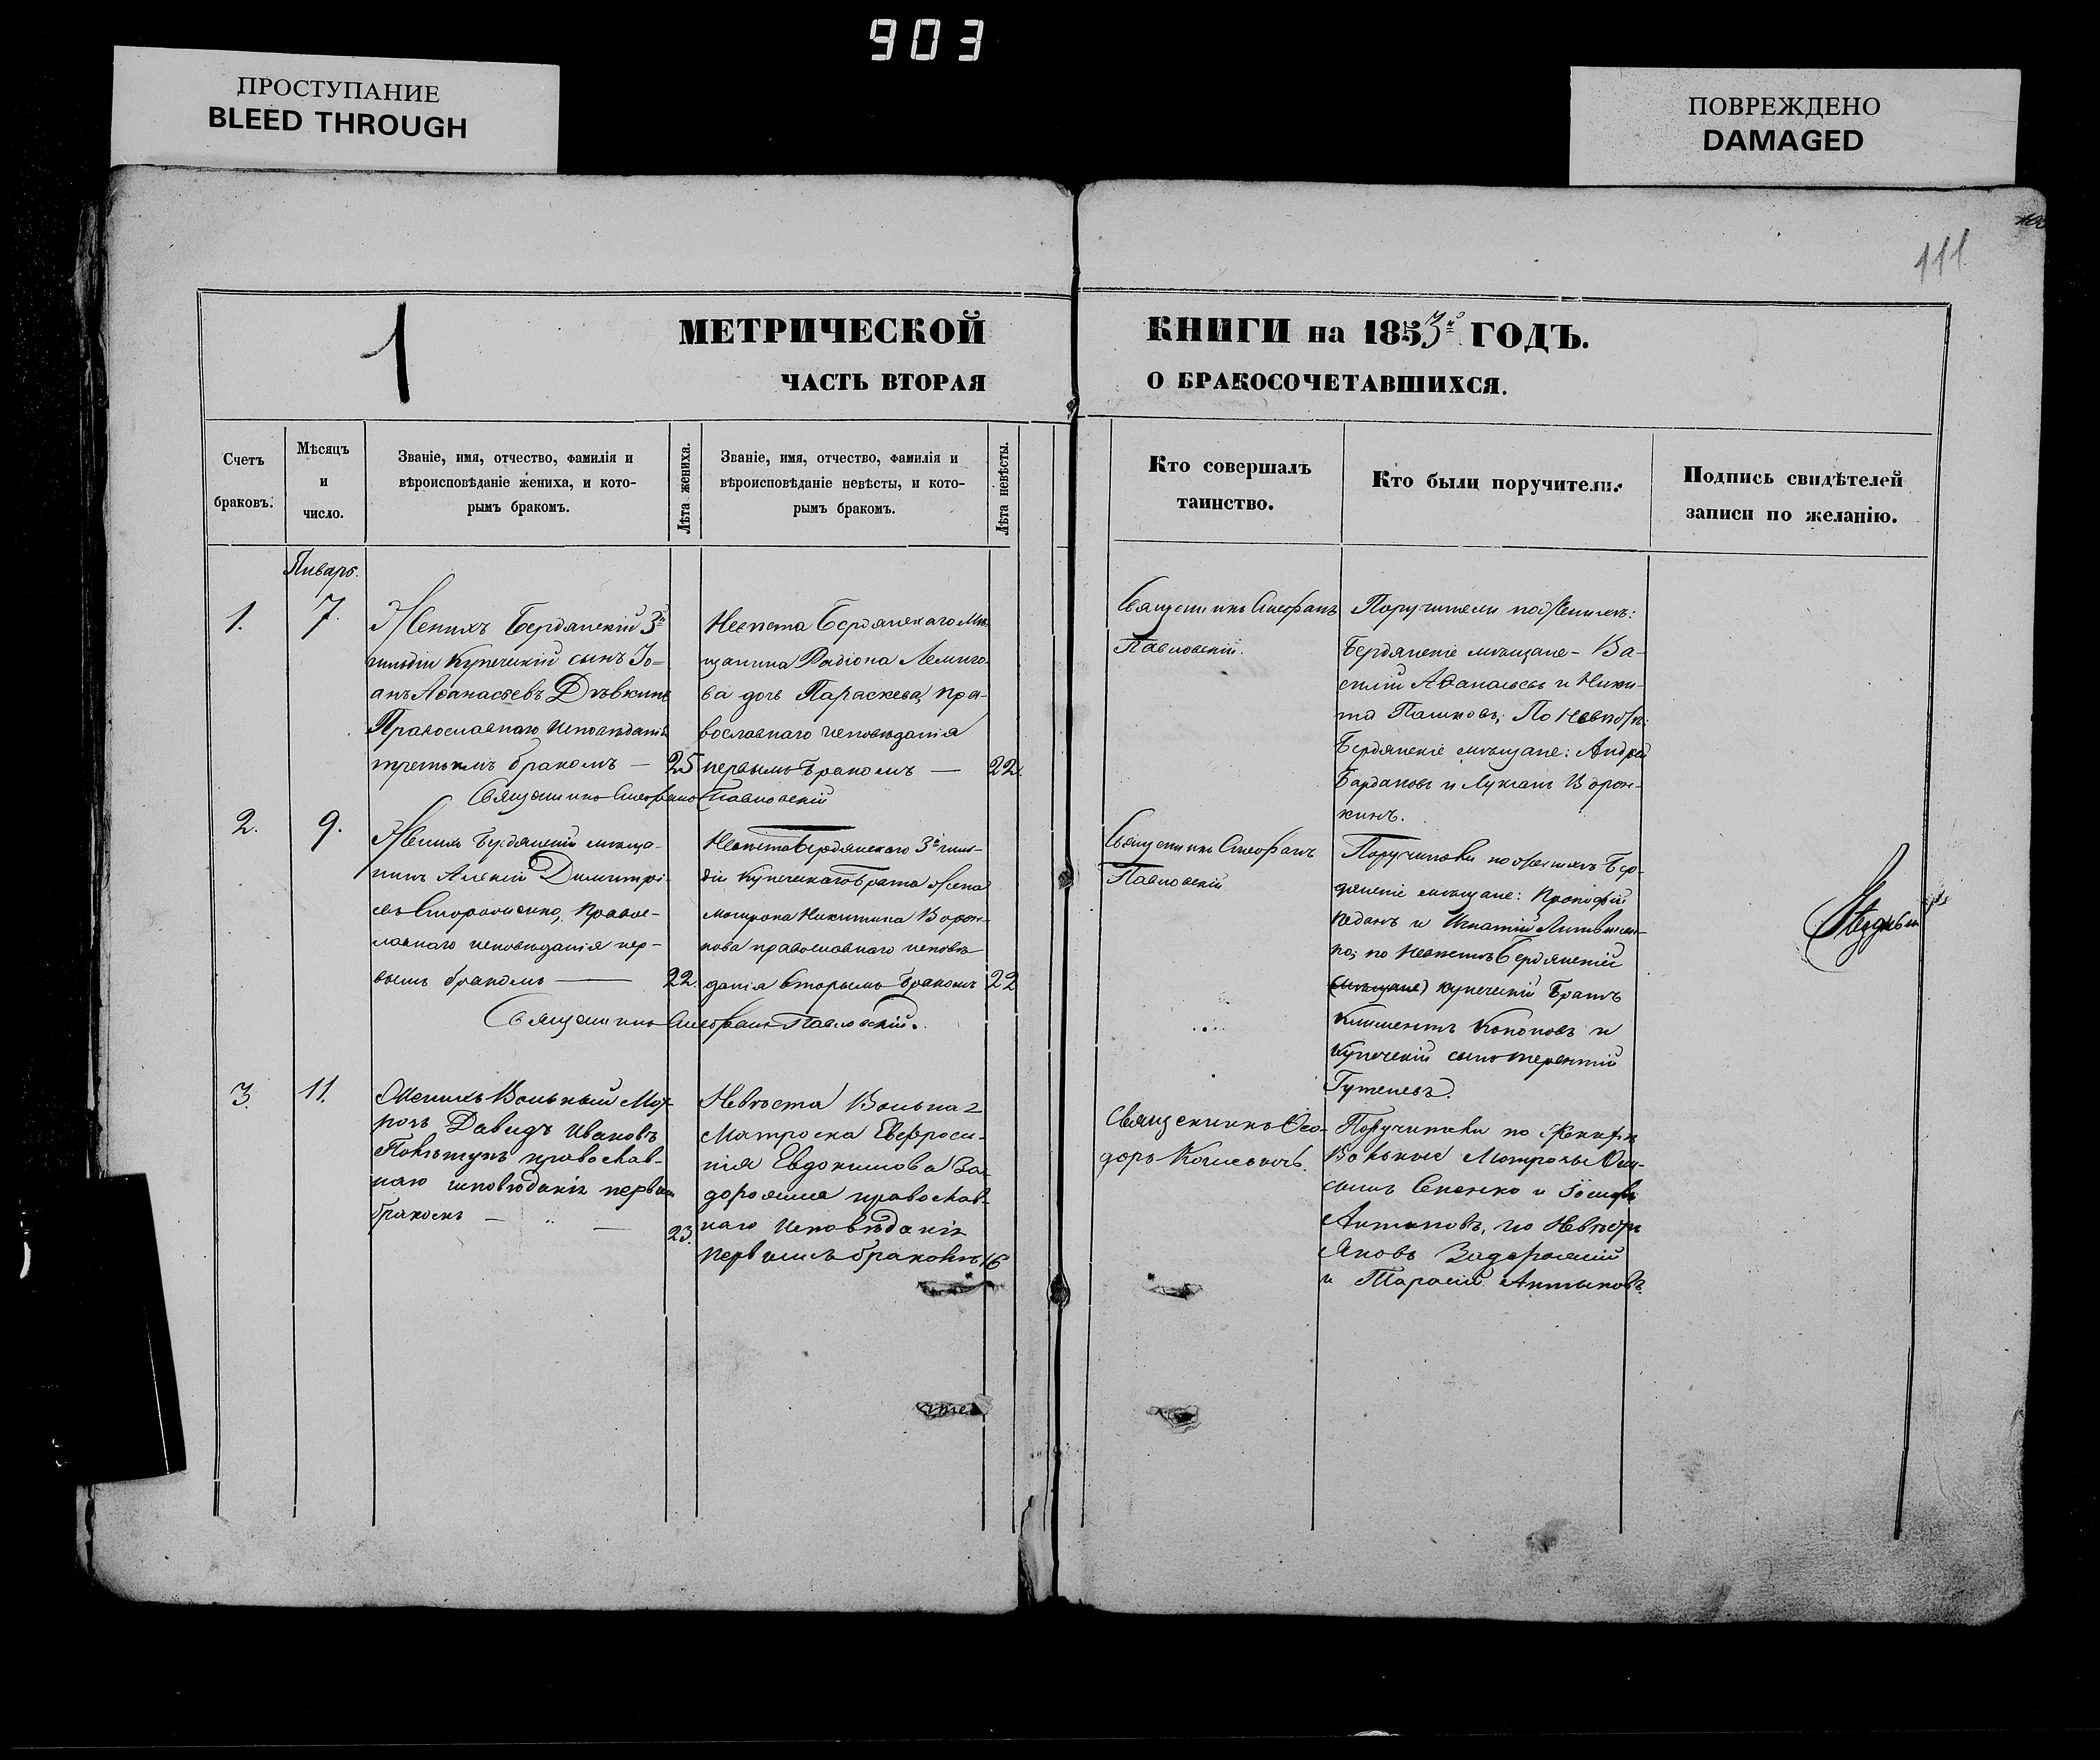 903
ПРОСТУПАНИЕ
BLEED THROUGH
ПОВРЕЖДЕНО
DAMAGED
111
1
МЕТРИЧЕСКОЙ
ЧАСТЬ ВТОРАЯ
КНИГИ на 1853й ГОДЪ.
О БРАКОСОЧЕТАВШИХСЯ.
Счетъ
браковъ.
Мѣсяцъ
и
число.
Званіе, имя, отчество, фамилія и
вѣроисповѣданіе жениха, и кото-
рымъ бракомъ.
Лѣта жениха.
Званіе, имя, отчество, фамилія и
вѣроисповѣданіе невѣсты, и кото-
рымъ бракомъ.
Лѣта невѣсты.
Кто совершалъ
таинство.
Кто были поручители.
Подпись свидѣтелей
записи по желанію.
Январь.
1.
7.
Женихъ Бердянскій 3й
гильдіи Купеческій сынъ Іо-
анъ Аѳанасьевъ
Православнаго Исповѣданія
третьимъ бракомъ —
25
Невѣста Бердянскаго Мѣ-
щанина Радіона
ва дочь Параскева, пра-
вославнаго исповѣданія
первымъ бракомъ —
22.
Священникъ Стефанъ
Павловскій.
Поручители по Женихѣ:
Бердянскіе мѣщане - Ва-
силій Аѳанасьевъ и Ники-
та Пашковъ; По Невѣстѣ:
Бердянскіе мѣщане: Андрей
Бардаковъ и Лукіанъ Ворон-
кинъ.
Священникъ Стефанъ Павловскій
2.
9.
Женихъ Бердянскій мѣща-
нинъ Алексій Димитрі-
евъ Правос-
лавнаго исповѣданія пер-
вымъ бракомъ —
22.
Невѣста Бердянскаго 3й гиль-
діи Купеческаго Брата Жена
Матрона Никитина Ворон-
кова православнаго исповѣ-
данія вторымъ бракомъ
22
Священникъ Стефанъ
Павловскій
Поручители по Женихѣ Бер-
дянскіе мѣщане: Прокофій
и Игнатій Литвинен-
ко, по Невѣстѣ Бердянскій
(мѣщане) купеческій Братъ
Климентъ Кононовъ и
Купеческій сынъ Терентій
Священникъ Стефанъ Павловскій.
3.
11.
Женихъ Вольный Мат-
росъ Давидъ Ивановъ
православ-
наго исповѣданія первымъ
бракомъ —
23.
Невѣста Вольнаго
Матроса Евфроси-
нія Евдокимова За-
дорожная православ-
наго Исповѣданія
первымъ бракомъ
16
Священникъ Ѳео-
доръ
Поручители по Женихѣ
Вольные Матросы
и Іосифъ
Антиповъ, по Невѣстѣ
Яковъ Задорожній
и Тарасій